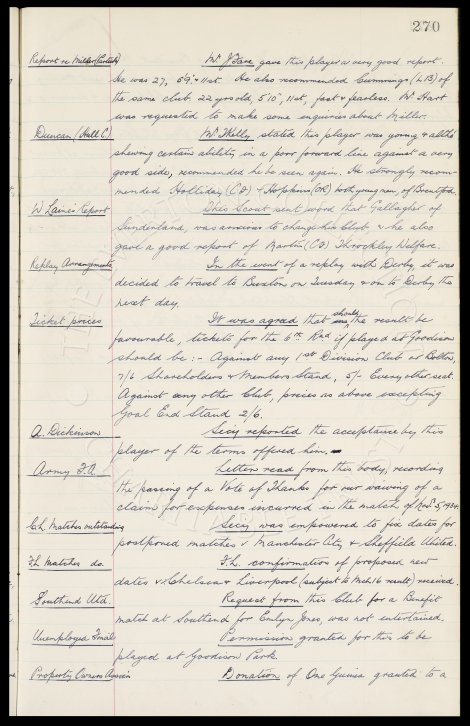 270
Report re Miller (Partick) Mr. J Fare gave this player a very good report.
He was 27, 5'9" & 11st. He also recommended Cummings (L.B) of
the same club. 22 yrs old, 5'10", 11st, fast & fearless. Mr Hart
was requested to make some enquiries about Miller.
Duncan (Hull C) Mr. T Kelly stated this player was young & altho'
shewing certain ability in a poor forward line against a very
good side, recommended he be seen again. He strongly recom-
mended Holliday (C.F) & Hopkins (OR) both young men of Brentford.
W Laine's Report This Scout sent word that Gallagher of
Sunderland, was anxious to change his Club, & he also
gave a good report of Martin (C.F) Throckley Welfare.
Replay Arrangements In the event of a replay with Derby, it was
decided to travel to Buxton on Tuesday & on to Derby the
next day.
Ticket prices It was agreed that should the result be
favourable, tickets for the 6th Rnd if played at Goodison
should be :- Against any 1st Division Club or Bolton,
7/6 Shareholders & Members Stand, 5/- Every other seat.
Against any other Club, prices as above excepting
Goal End Stand 2/6.
A. Dickinson Secy reported the acceptance by this
player of the terms offered him.
Army F.A. Letter read from this body, recording
the passing of a Vote of Thanks for our waiving of a
claim for expenses incurred in the match of Novr. 5, 1934.
C.L. Matches outstanding Secy was empowered to fix dates for
postponed matches v Manchester City & Sheffield United.
F.L Matches do. F.L. confirmation of proposed new
dates v. Chelsea & Liverpool (subject to Mch 16 result) received.
Southend Utd. Request from this Club for a Benefit
match at Southend for Emlyn Jones, was not entertained.
Unemployed Final Permission granted for this to be
played at Goodison Park.
Property Owners Assocn Donation of One Guinea granted to a